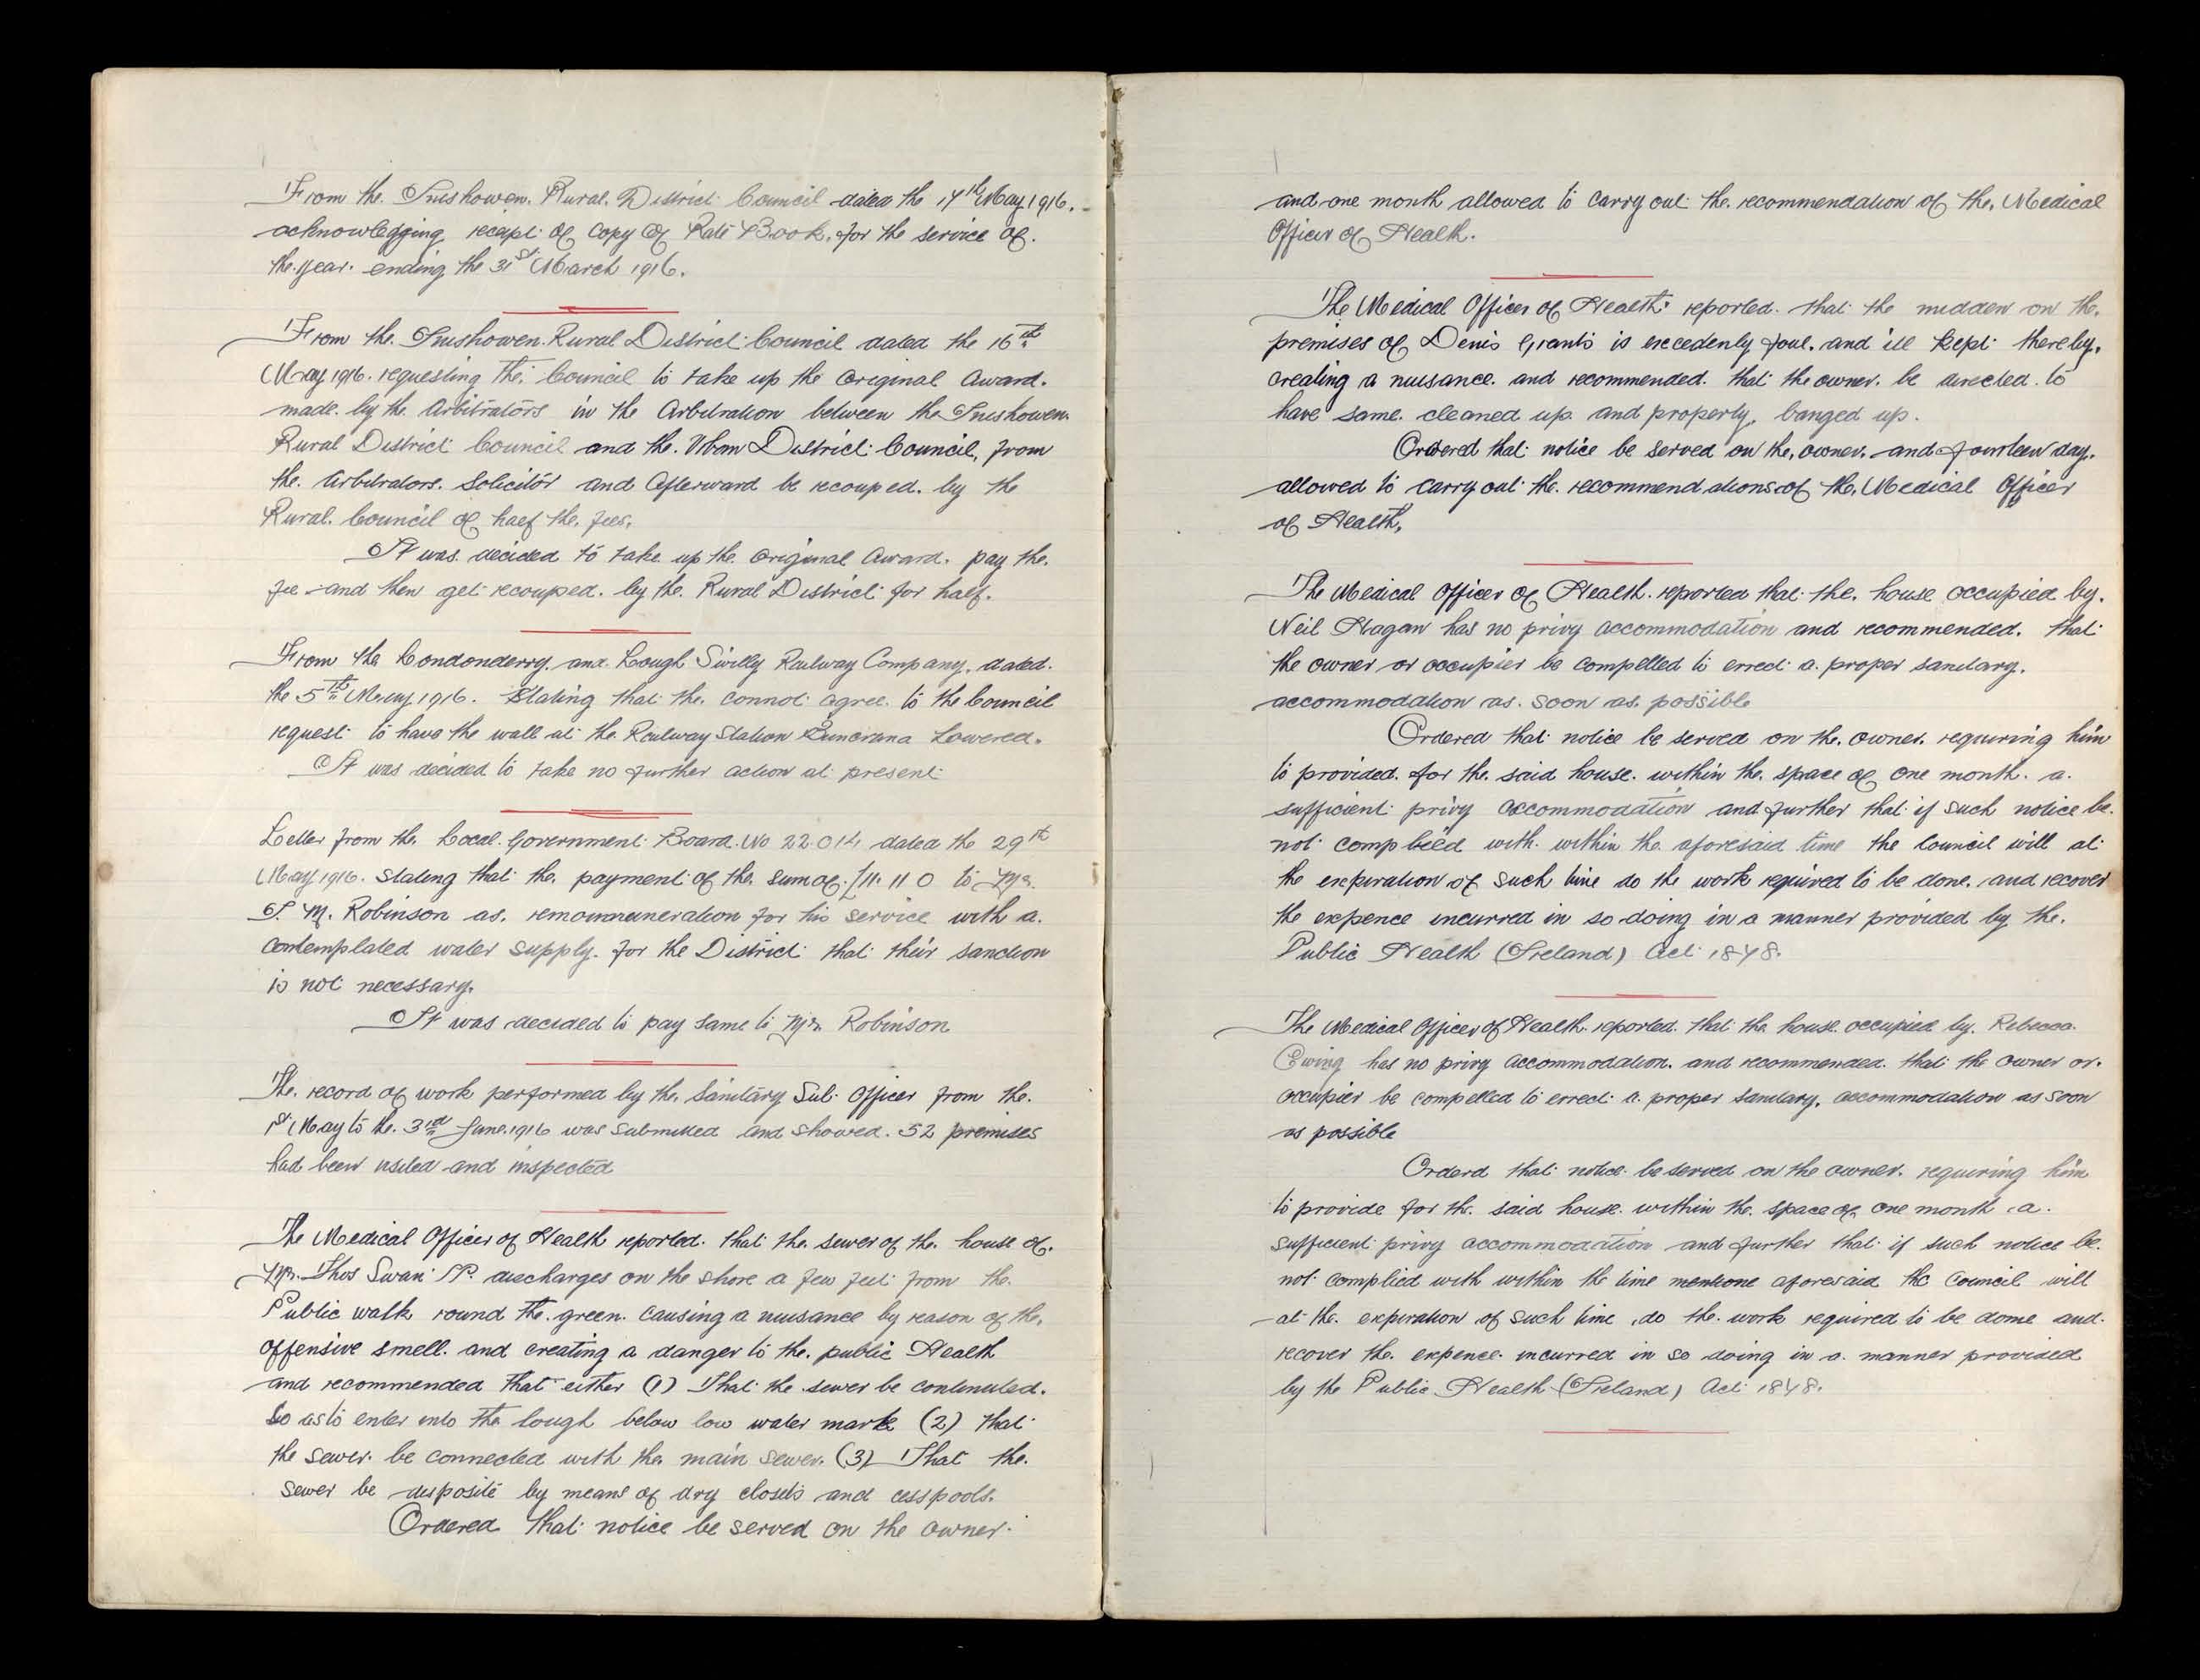 From the Inishowen Rural District Council dated the 17th May 1916.
acknowledging receipt of copy of Rate Book for the service of
the year ending the 31st March 1916.
From the Inishowen Rural District Council dated the 16th
May 1916 requesting the Council to take up the original Award
made by the Arbitrators in the Arbitration between the Inishowen
Rural District Council and the Urban District Council, from
the Arbitrators Solicitor and afterward be recouped by the
Rural Council of half the fees.
It was decided to take up the original Award pay the
fee and then get recouped by the Rural District for half.
From the Londonderry and Lough Swilly Railway Company, dated
the 5th May 1916. Stating that the connot agree to the Council
request to have the wall at the Railway Station Buncrana Lowered.
It was decided to take no further action at present
Letter from the Local Government Board No 22.014 dated the 29th
May 1916. stating that the payment of the sum of £11. 11 0 to Mr.
M. Robinson as for his service with a
contemplated water supply for the District that their sanction
is not necessary.
It was decided to pay same to Mr. Robinson
The record of work performed by the Sanitary Sub Officer from the
1st May to the 3rd June 1916 was submitted and showed 52 premises
had been visited and inspected
The Medical Officer of Health reported that the sewer of the house of
Mr. Thos Swan J.P. discharges on the shore a few feet from the
Public walk round the green causing a nuisance by reason of the
offensive smell and creating a danger to the public Health
and recommended that either (1) That the sewer be continuted
so as to enter into the lough below low water mark (2) that
the sewer be connected with the main sewer. (3) That the
sewer be disposite by means of dry closets and cesspools.
Ordered that notice be served on the owner
and one month allowed to carry out the recommendation of the Medical
Officer of Health.
The Medical Officer of Health reported that the midden on the
premises of Denis Grants is excedenly foul and ill kept thereby
creating a nuisance and recommended that the owner be directed to
have same cleaned up and properly banged up.
Ordered that notice be served on the owner and fourteen day
allowed to carry out the recommendations of the Medical Officer
of Health.
The Medical Officer of Health reported that the house occupied by
Neil Hagan has no privy accommodation and recommended that
the owner or occupier be compelled to errect a proper sanitary
accommodation as soon as possible
Ordered that notice be served on the owner requiring him
to provided for the said house within the space of one month a
sufficient privy accommodation and further that if such notice be
not complied with within the aforesaid time the Council will at
the expiration of such time do the work required to be done and recover
the expence incurred in so doing in a manner provided by the
Public Health (Ireland) Act 1878.
The Medical Officer of Health reported that the house occupied by Rebecca
Ewing has no privy accommodation and recommended that the owner or
occupier be compelled to errect a proper sanitary accommodation as soon
as possible
Orderd that notice be served on the owner requiring him
to provide for the said house within the space of one month a
sufficient privy accommodation and further that if such notice be
not complied with within the time mentione aforesaid the Council will
at the expiration of such time do the work required to be dome and
recover the expence incurred in so doing in a manner provided
by the Public Health (Ireland) Act 1878.